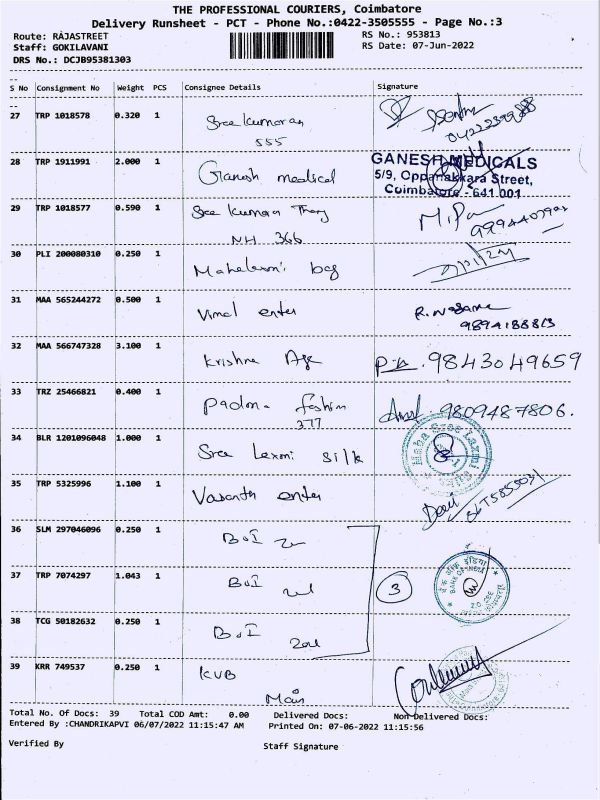 THE PROFESSIONAL COURIERS, Coimbatore
Delivery Runsheet - PCT - Phone No.:0422-3505555 - Page No.:3
Route: RAJASTREET RS No.: 953813
Staff: GOKILAVANI RS Date: 07-Jun-2022
DRS No.: DCJB95381303
S No Consignment No Weight PCS Consignee Details Signature
27 TRP 1018578 0.320 1 Sree Kumaran
555
28 TRP 1911991 2.000 1 Ganesh medical GANESH MEDICALS
5/9, Oppanakkara Street,
Coimbatore - 641 001
29 TRP 1018577 0.590 1 Sree Kumaran Thang
NH 366
30 PLI 200080310 0.250 1 Mahalaxmi bag
31 MAA 565244272 0.500 1 Vimal enter
9894188813
32 MAA 566747328 3.100 1 Krishna Age 9843049659
33 TRZ 25466821 0.400 1 Padma fashion 9809487806.
377
34 BLR 1201096048 1.000 1 Sree Laxmi silk Maha Sree Laxmi Silks
35 TRP 5325996 1.100 1 Vasanth enter
36 SLM 297046096 0.250 1 BoI
37 TRP 7074297 1.043 1 BoI 3 बैंक ऑफ़ इंडिया BANK OF INDIA
38 TCG 50182632 0.250 1 BoI
39 KRR 749537 0.250 1 KVB
Main
Total No. Of Docs: 39 Total COD Amt: 0.00 Delivered Docs: Non Delivered Docs:
Entered By :CHANDRIKAPVI 06/07/2022 11:15:47 AM Printed On: 07-06-2022 11:15:56
Verified By Staff Signature